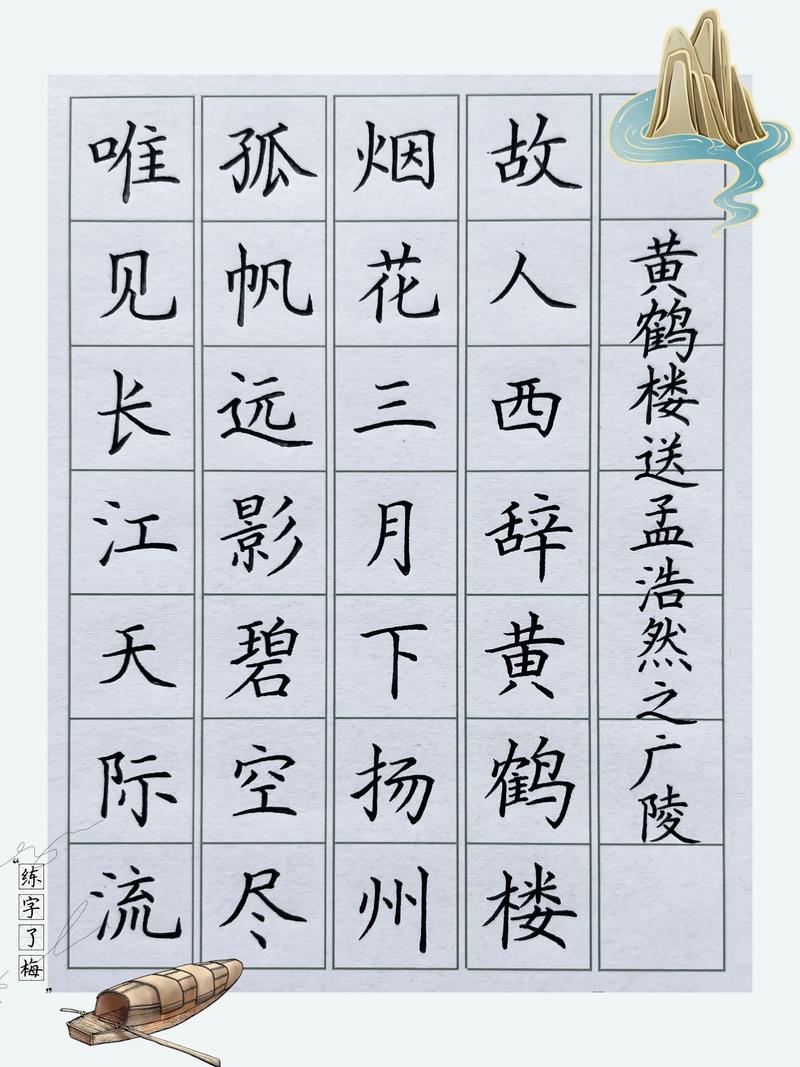 黄鹤楼送孟浩然之广陵
故人西辞黄鹤楼
烟花三月下扬州
孤帆远影碧空尽
唯见长江天际流
练字了梅